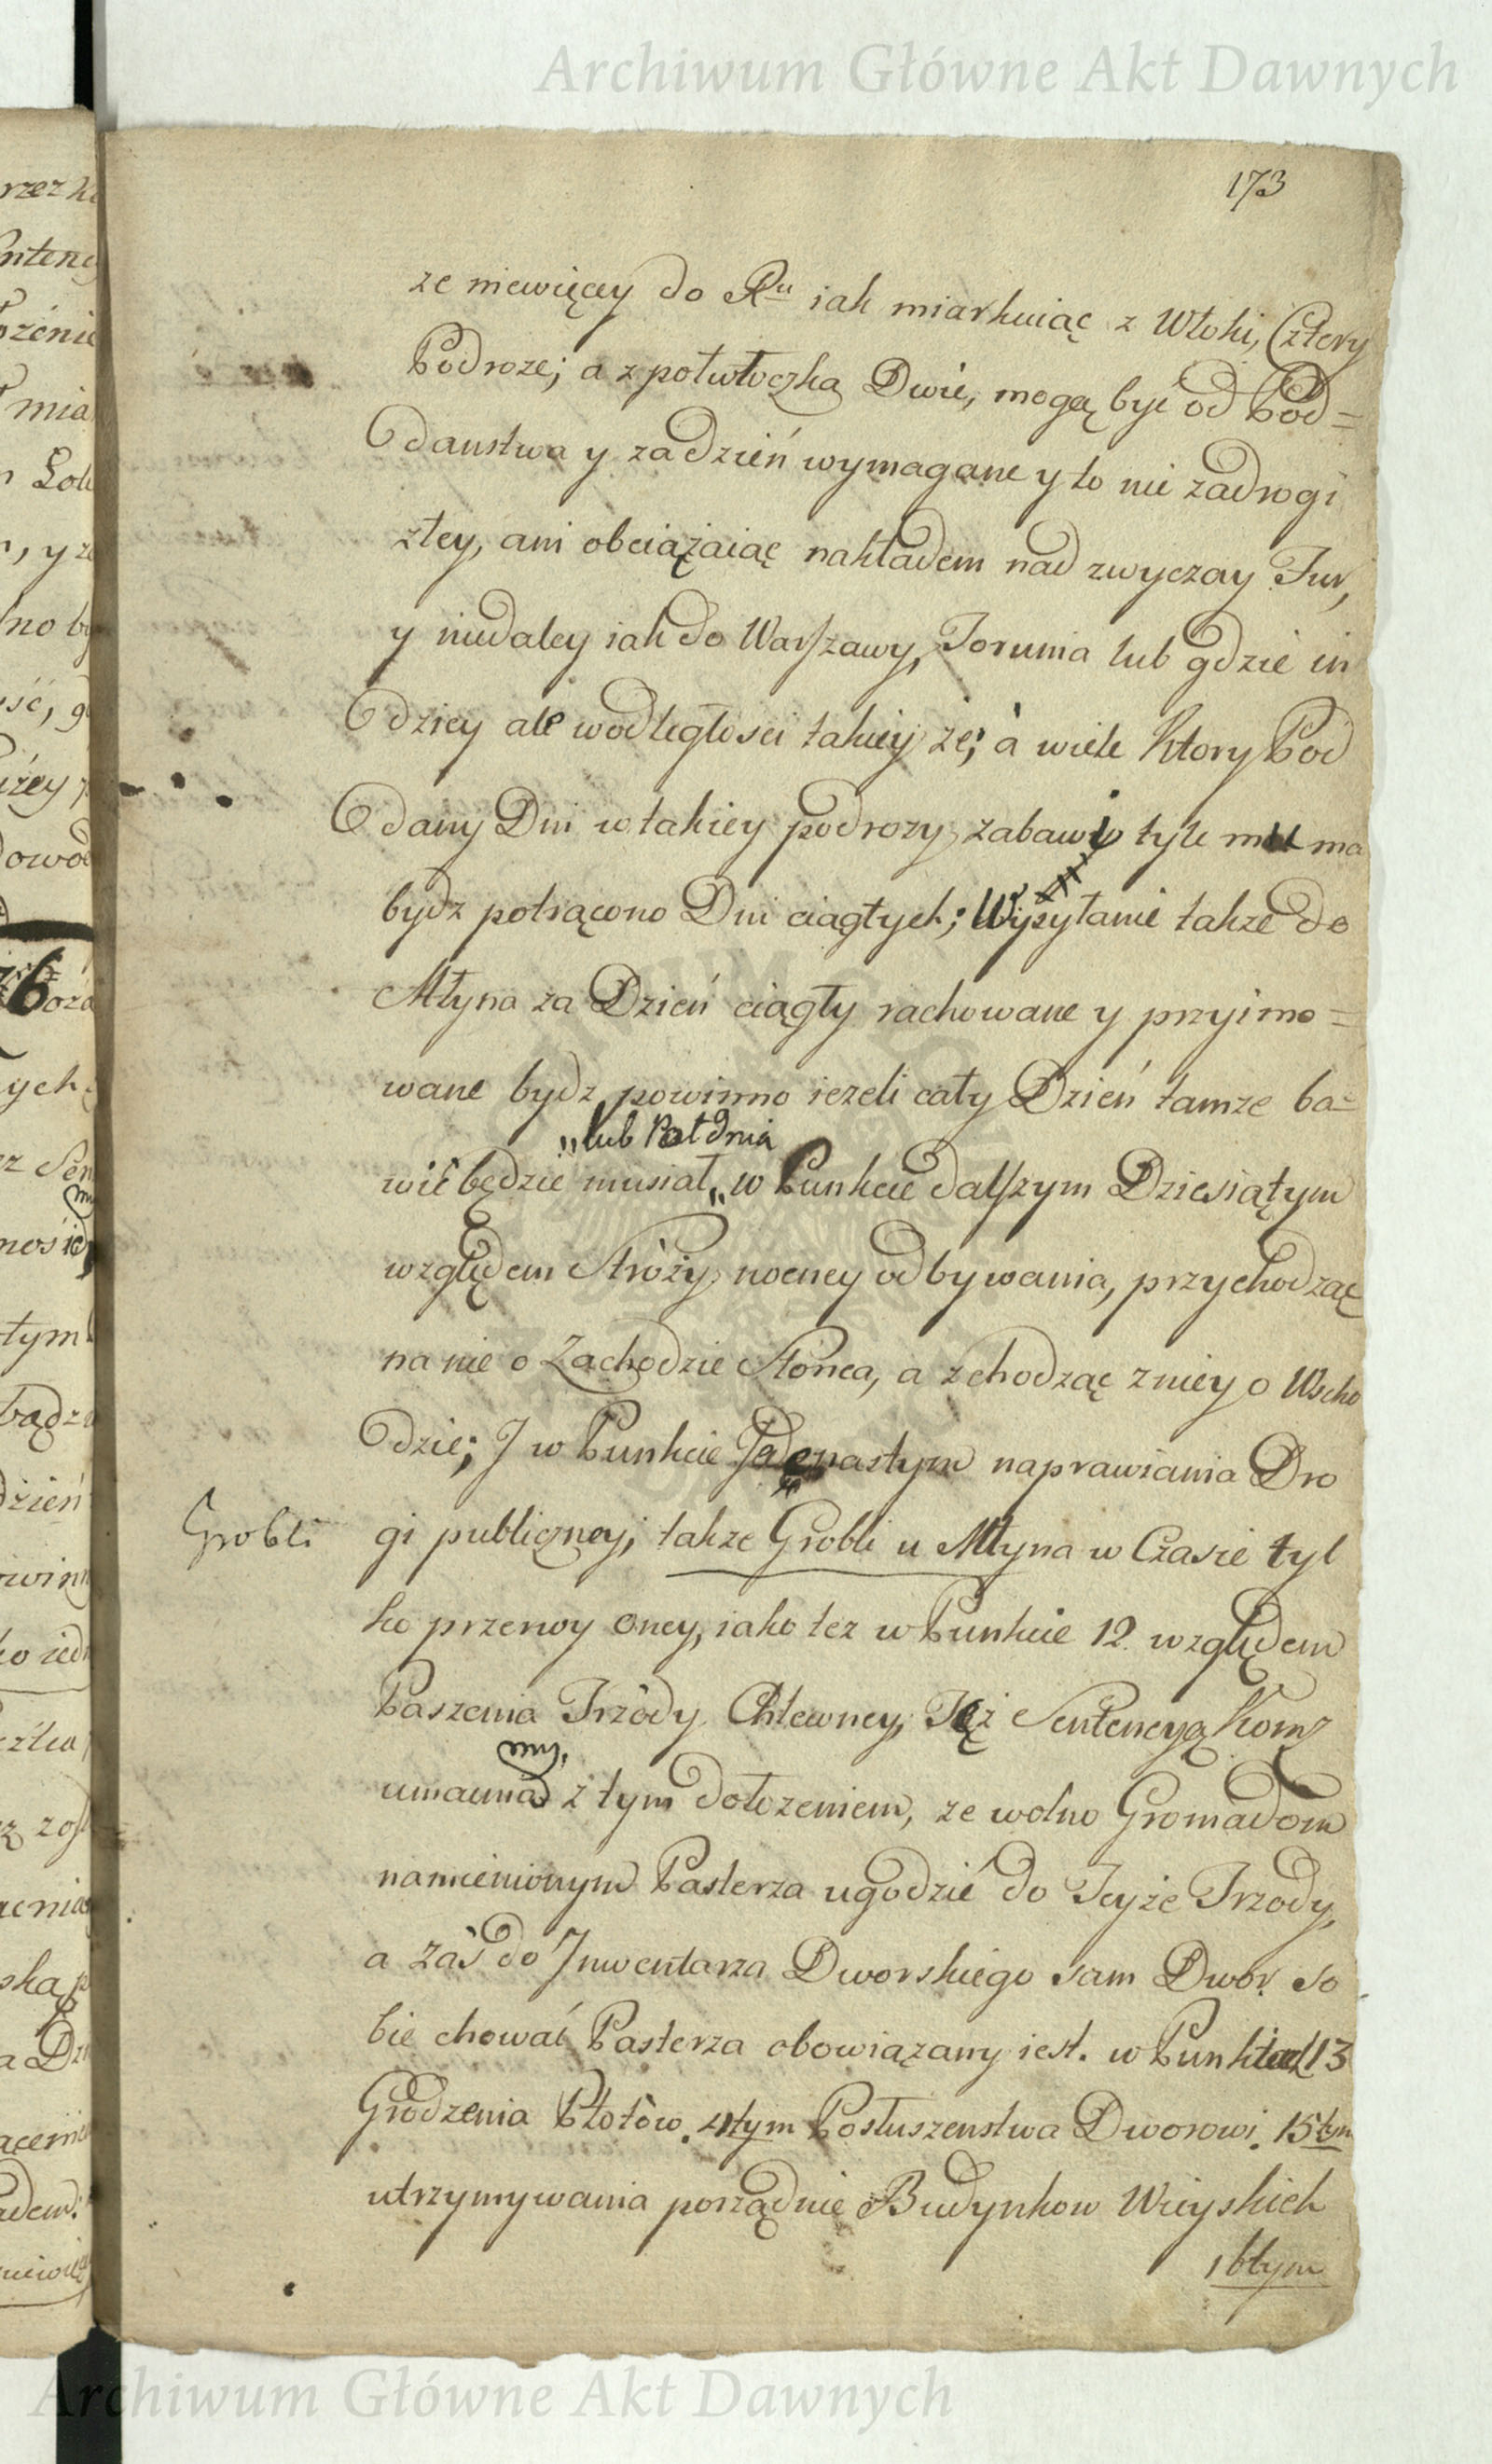 Archiwum Główne Akt Dawnych
173
ze niewięcey do Rᵘ iak miarkuiąc z Włoki, Cztery
Podroze; a z połwłoczka Dwie, mogą być od Pod=
daństwa y za dzień wymagane y to nie zadrogi
złey, ani obciążaiąc nakładem nad zwyczay Fur,
y niedaley iak do Warszawy, Torunia lub gdzie in
dziey ale w odległosci takiey że; à wiele ktory Pod
dany Dni w takiey podrozy zabawi tyle mu ma
bydz potrącono Dni ciągłych; Wysyłanie takze do
Młyna za Dzień ciągły rachowane y przyimo=
wane bydz powinno iezeli cały Dzień tamze ba=
„lub Poł dnia
wić będzie musiał„ w Punkcie dalszym Dziesiątym
względem Stróży nocney odbywania, przychodząc
na nie o Zachodzie Słonca, a zchodząc z niey o Wscho
dzie; J w Punkcie Jedenastym naprawiania Dro
Grobli
gi publiczney; takze Grobli u Młyna w Czasie tyl
ko przerwy oney, iako tez w Punkcie 12. względem
Paszenia Trzody Chlewney, Tęż Sentencyą Kom
my,
umacnia z tym dołozeniem, ze wolno Gromadom
namienionym Pasterza ugodzić do Teyże Trzody,
a zaś do Jnwentarza Dworskiego sam Dwor so
bie chować Pasterza obowiązany iest. w Punkcie 13
Grodzenia Płotów. 4tym Posłuszenstwa Dworowi. 15tym
utrzymywania porządnie Budynkow Wieyskich
16tym
Archiwum Główne Akt Dawnych